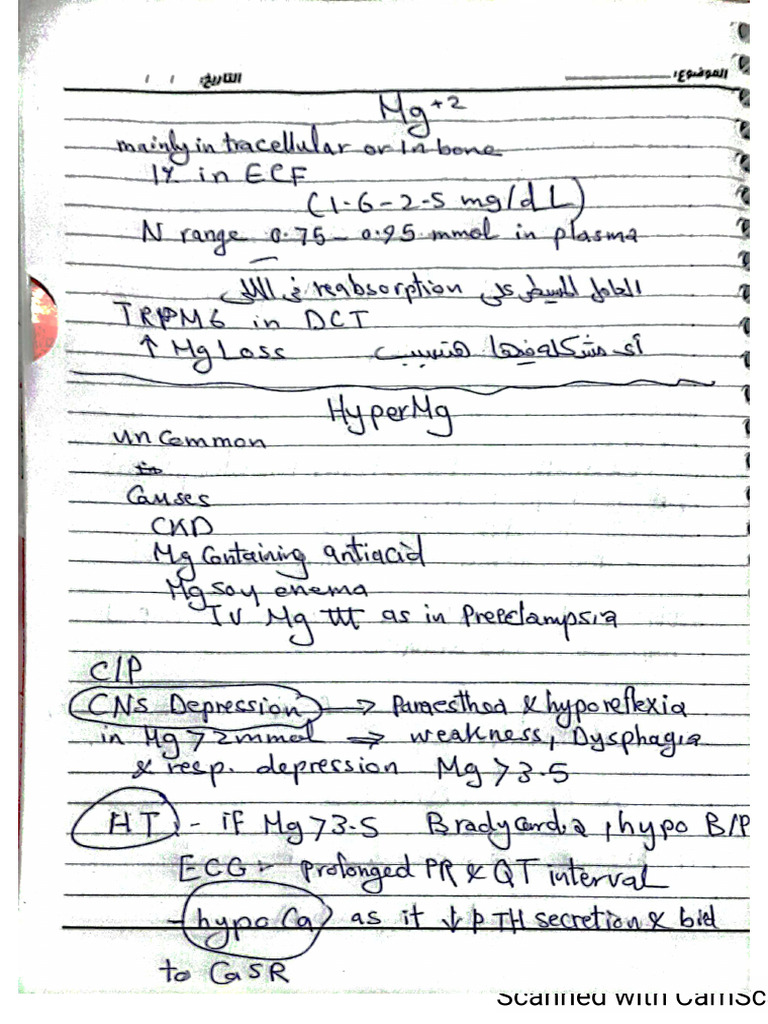 الموضوع: التاريخ: / /
Mg+2
mainly intracellular or in bone
1% in ECF
(1.6-2.5 mg/dL)
N range 0.75-0.95 mmol in plasma
العامل المسيطر على reabsorption في الكلى
TRPM6 in DCT
أى مشكله فيها هتسبب ↑ Mg Loss
HyperMg
uncommon
Causes
CKD
Mg Containing antiacid
Mg soy enema
IV Mg ttt as in Preeclampsia
C/P
CNS Depression → Paraesthod & hyporeflexia
in Mg > 2mmol ⇒ weakness, Dysphagia
& resp. depression Mg > 3.5
HT - if Mg > 3.5 Bradycardia, hypo B/P
ECG :- prolonged PR & QT interval
- hypo Ca as it ↓ PTH secretion & bid
to CaSR
Scanned with CamSc